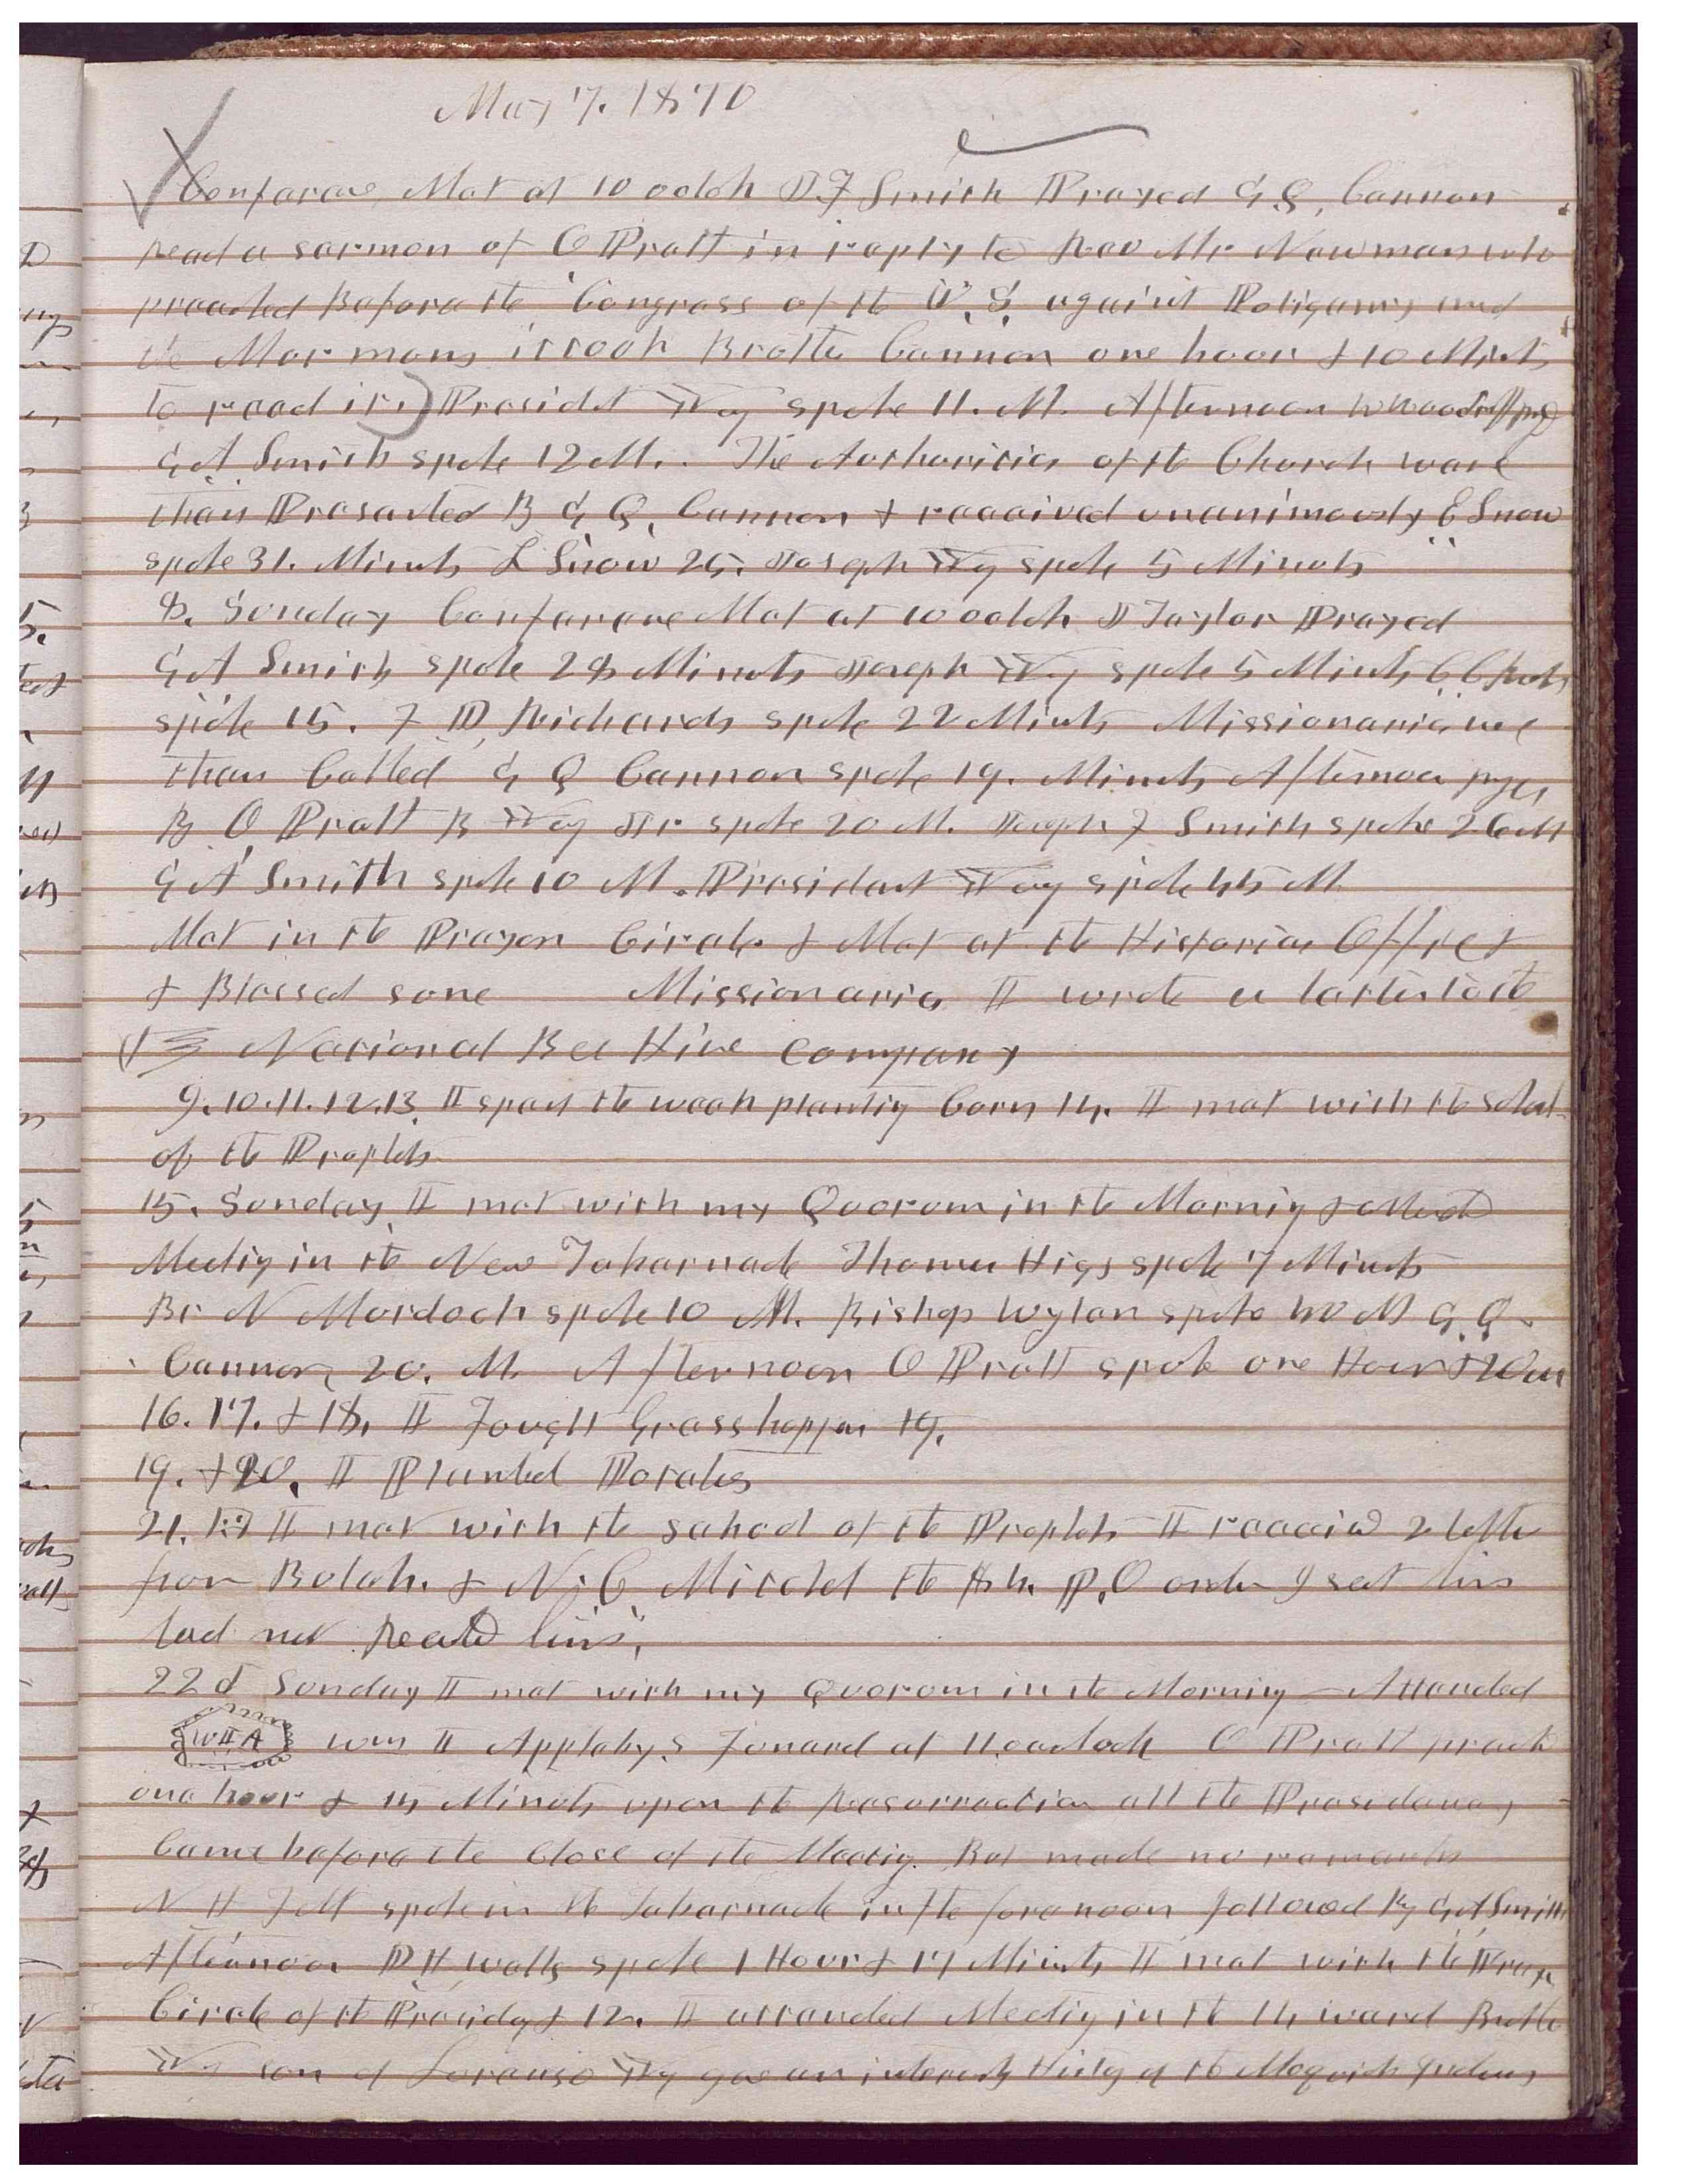 May 7. 1870
Conferance Met at 10 oclok J F Smith Prayed G Q. Cannon
Read a sermon of O Pratt in reply to Rev Mr Newman who
preached Before the Congress of the U. S. against Poligamy and
the Mormons it took Brother Cannon one hour & 10 Minuts
to read it.) Presidet Young spoke 11. M. Afternoon W Woodruff pryd
G A Smith spoke 12 M. The Authorities of the Church ware
then Presented By G Q. Cannon & received unanimously E Snow
spoke 31. Minuts L Snow 25. Joseph Young spoke 5 Minuts
8. Sunday Conferance Met at 10 oclok J Taylor Prayed
G A Smith spoke 28 Minuts Joseph Young spoke 5 Minuts C C Rich
spoke 15. F D. Richards spoke 22 Minuts Missionaries were
then Called G Q Cannon spoke 19. Minuts Afternoon prayer
By O. Pratt B Young Jr spoke 20 M. Joseph F Smith spoke 26 M
G A Smith spoke 10 M. President Young spoke 45 M
Met in the Prayer Circle & Met at the Historian Office
& Blessed some Missionaries I wrote a letter to the
National Bee Hive Company
9. 10. 11. 12. 13. I spent the week planting Corn 14. I met with the School
of the Prophets
15. Sunday I met with my Quorum in the Morning & attend
Meeting in the New Tabernacle Thomas Higgs spoke 7 Minuts
Br N Murdoch spoke 10 M. Bishop Wylan spoke 40 M G. Q.
Cannon 20. M. Afternoon O Pratt spoke one Hour & 20 m
16. 17. & 18. I Fought Grasshopper 19.
19. & 20. I Planted Potatoes
21. I met with the School of the Prophets I received 2 letters
from Beloah. & N. C. Mitchel the P. O order I sent him
had not Reached him.
22d Sunday I met with my Quorum in the Morning Attended
W I A Wm I Appleby. S Funeral at 11. oclock O Pratt preached
one hour & 15 Minuts upon the Resurrection all the Presidency
Came before the Close of the Meeting. But made no remarks
N H Felt spoke in the Tabernacle in the forenoon followed by G A Smith
Afternoon D H Wells spoke 1 Hour & 17 Minuts I met with the Prayer
Circle of the Presidency & 12. I attended Meeting in the 14 ward Brother
Young son of Lorenzo Young gave an interesting History of the Moquich Indians